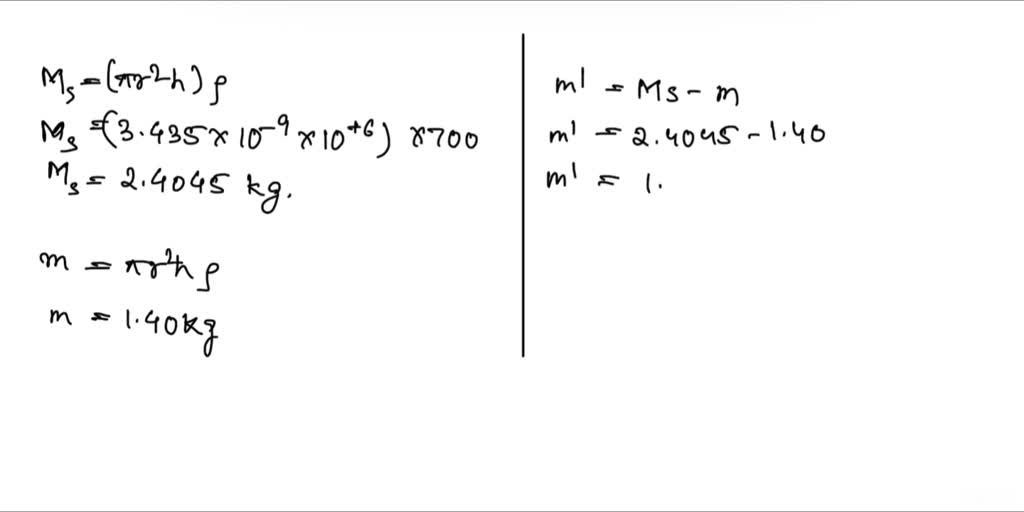 Ms = (πr²h) ρ
Ms = (3.435 × 10⁻⁹ × 10⁺⁶) × 700
Ms = 2.4045 kg.
m = πr²h ρ
m = 1.40 kg
m' = Ms - m
m' = 2.4045 - 1.40
m' = 1.